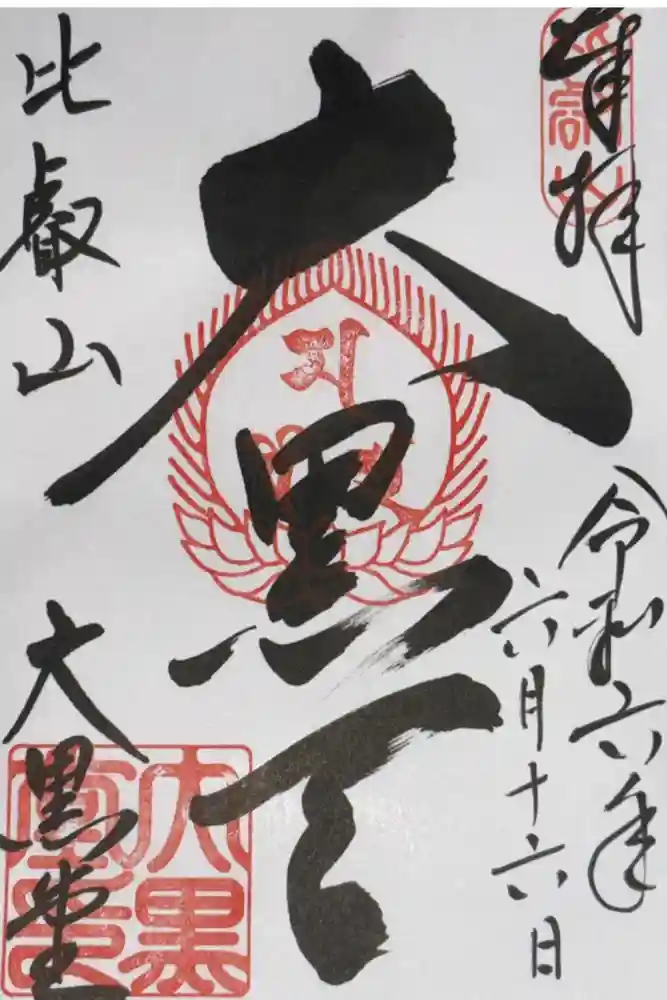 奉拝
令和六年
六月十六日
大黒天
比叡山
大黒堂
大黒